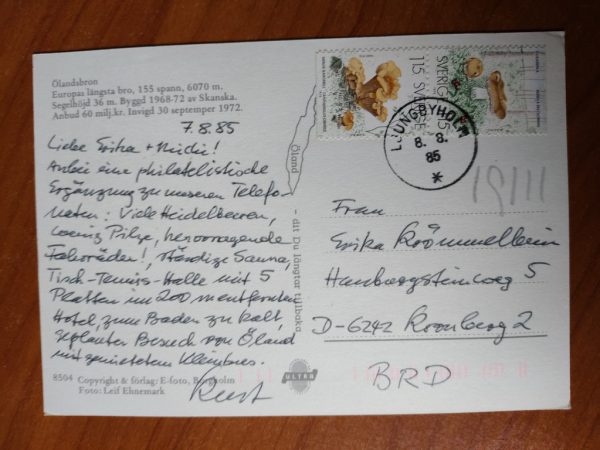 Ölandsbron
Europas längsta bro, 155 spann, 6070 m.
Segelhöjd 36 m. Byggd 1968-72 av Skanska.
Anbud 60 milj.kr. Invigd 30 september 1972.
7.8.85
Liebe Erika +
Anbei eine philatelistische
Ergänzung zu unseren Telefo-
naten: Viele Heidelbeeren,
wenig Pilze, hervorragende
Fahrräder!, ständige Sauna,
Tisch-Tennis-Halle mit 5
Platten im 200 m entfernten
Hotel, zum Baden zu kalt,
geplanter Besuch von Öland
mit gemietetem Kleinbus.
8504 Copyright & förlag: E-foto, Borgholm
Foto: Leif Ehnemark
Öland
- dit Du längtar tillbaka
ULTRA
SVERIGE
115
LJUNGBYHOLM
8. 8.
85
Frau
Erika Krömmelbein
Hainbergsteinweg 5
D-6242 Kronberg 2
BRD